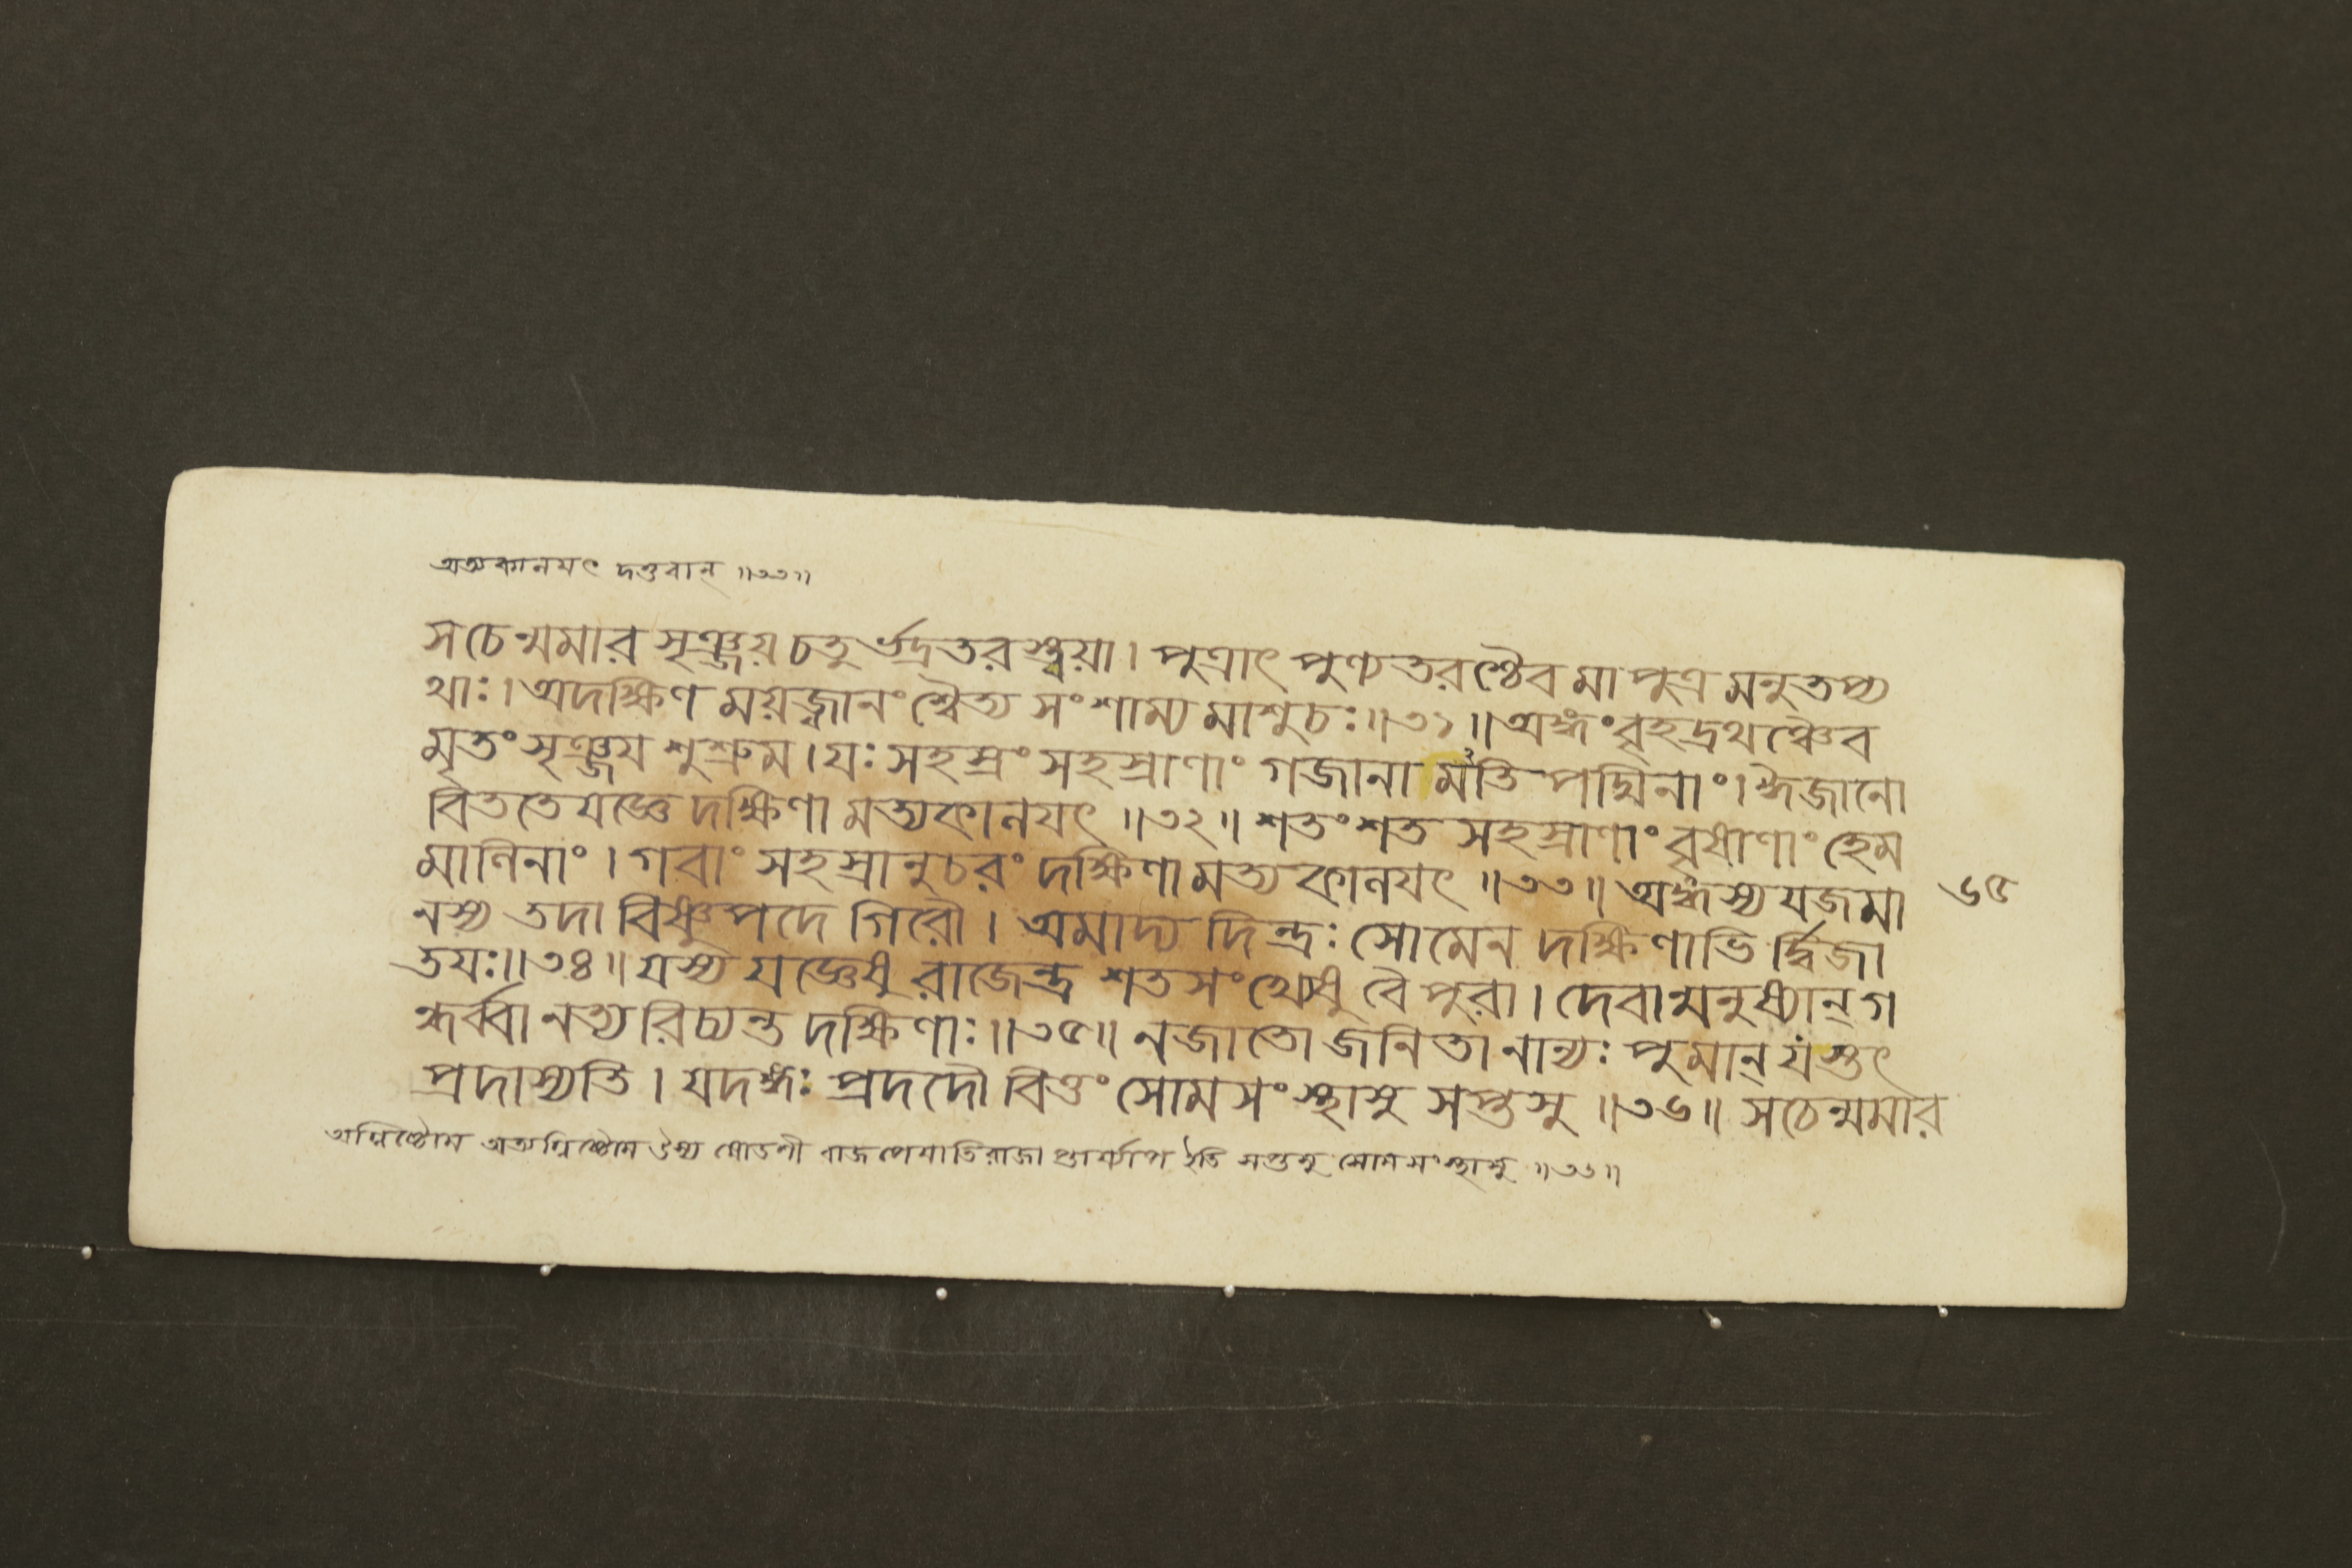 অত্যকালযৎ দত্তবান্ ॥৩৩॥
সচেন্মমার সৃঞ্জয় চতুর্ভদ্রতরস্ত্বয়া । পুত্রাৎ পুণ্যতরশ্চৈব মা পুত্র মনুতপ্য
থাঃ । অদক্ষিণ ময়জ্বানং শ্বৈত্য সংশাম্য মাশুচঃ ॥৩১॥ অঙ্গং বৃহদ্রথঞ্চৈব
মৃতং সৃঞ্জয শুশ্রুম । যঃ সহস্রং সহস্রাণাং গজানা মতি পদ্মিনাং । ঈজানো
বিততে যজ্ঞে দক্ষিণা মত্যকালযৎ ॥৩২॥ শতং শত সহস্রাণাং বৃষাণাং হেম
মালিনাং । গবাং সহস্রানুচরং দক্ষিণা মত্যকালযৎ ॥৩৩॥ অঙ্গস্য যজমা
৬৫
নস্য তদা বিষ্ণুপদে গিরৌ । অমাদ্য দিন্দ্রঃ সোমেন দক্ষিণাভি র্দ্বিজা
তযঃ ॥৩৪॥ যস্য যজ্ঞেষু রাজেন্দ্র শতসংখ্যেষু বৈ পুরা । দেবান্মনুষ্যান্ গ
ন্ধর্ব্বা নত্যরিচ্যন্ত দক্ষিণাঃ ॥৩৫॥ ন জাতো জনিতা নান্যঃ পুমান্ যস্তৎ
প্রদাস্যতি । যদঙ্গঃ প্রদদৌ বিত্তং সোমসংস্থাসু সপ্তসু ॥৩৬॥ সচেন্মমার
অগ্নিষ্টোম অত্যগ্নিষ্টোম উক্থ্য ষোডশী বাজপেযাতিরাত্রা প্তোর্যামা ইতি সপ্তসু সোমসংস্থাসু ॥৩৬॥